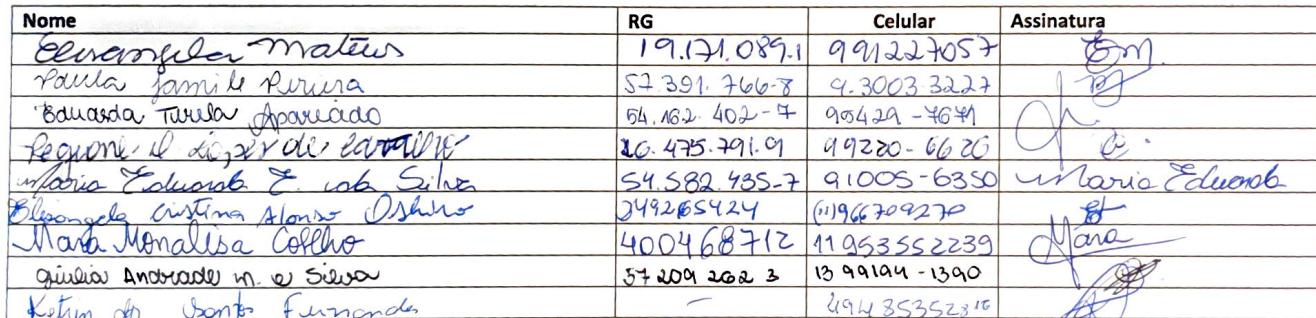 Nome RG Celular Assinatura
Elisangela Mateus 19.171.089.1 991227057 EM
Paula Jamile Pereira 57.391.766-8 9.3003.3227
Eduarda Turela Aparecido 54.162.402-7 95429-7671
de 26.475.791.9 99220-6620
Maria Eduarda E. da Silva 54.582.435-7 91005-6350 Maria Eduarda
Elisangela Cristina Alonso Oshiro 349265424 (11)966709270
Mara Monalisa Coelho 400468712 11953552239 Mara
Giulia Andrade M. e Silva 57209262 3 13 99194-1390
Santos Fernandes -